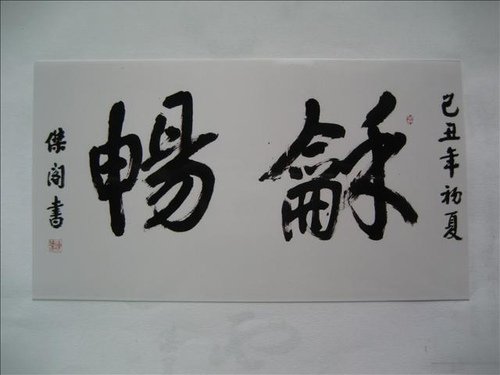 己丑年初夏
龢暢
傑阁書